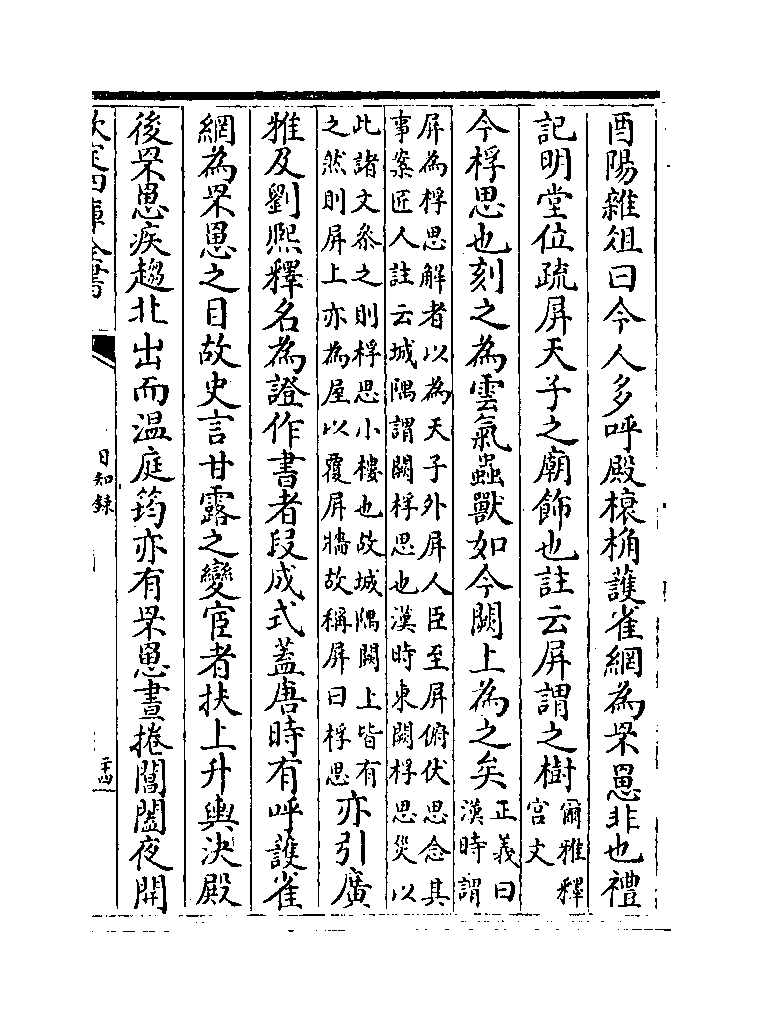 酉陽雜俎曰今人多呼殿榱桷護雀網為罘罳非也禮
記明堂位疏屏天子之廟飾也註云屏謂之樹爾雅釋宫文
今桴思也刻之為雲氣蟲獸如今闕上為之矣正義曰漢時謂
屏為桴思解者以為天子外屏人臣至屏俯伏思念其
事案匠人註云城隅謂闕桴思也漢時東闕桴思災以
此諸文參之則桴思小樓也故城隅闕上皆有
之然則屏上亦為屋以覆屏牆故稱屏曰桴思亦引廣
雅及劉熙釋名為證作書者段成式蓋唐時有呼護雀
網為罘罳之目故史言甘露之變宦者扶上升輿決殿
後罘罳疾趨北出而温庭筠亦有罘罳晝捲閶闔夜開
欽定四庫全書
日知錄
二十四